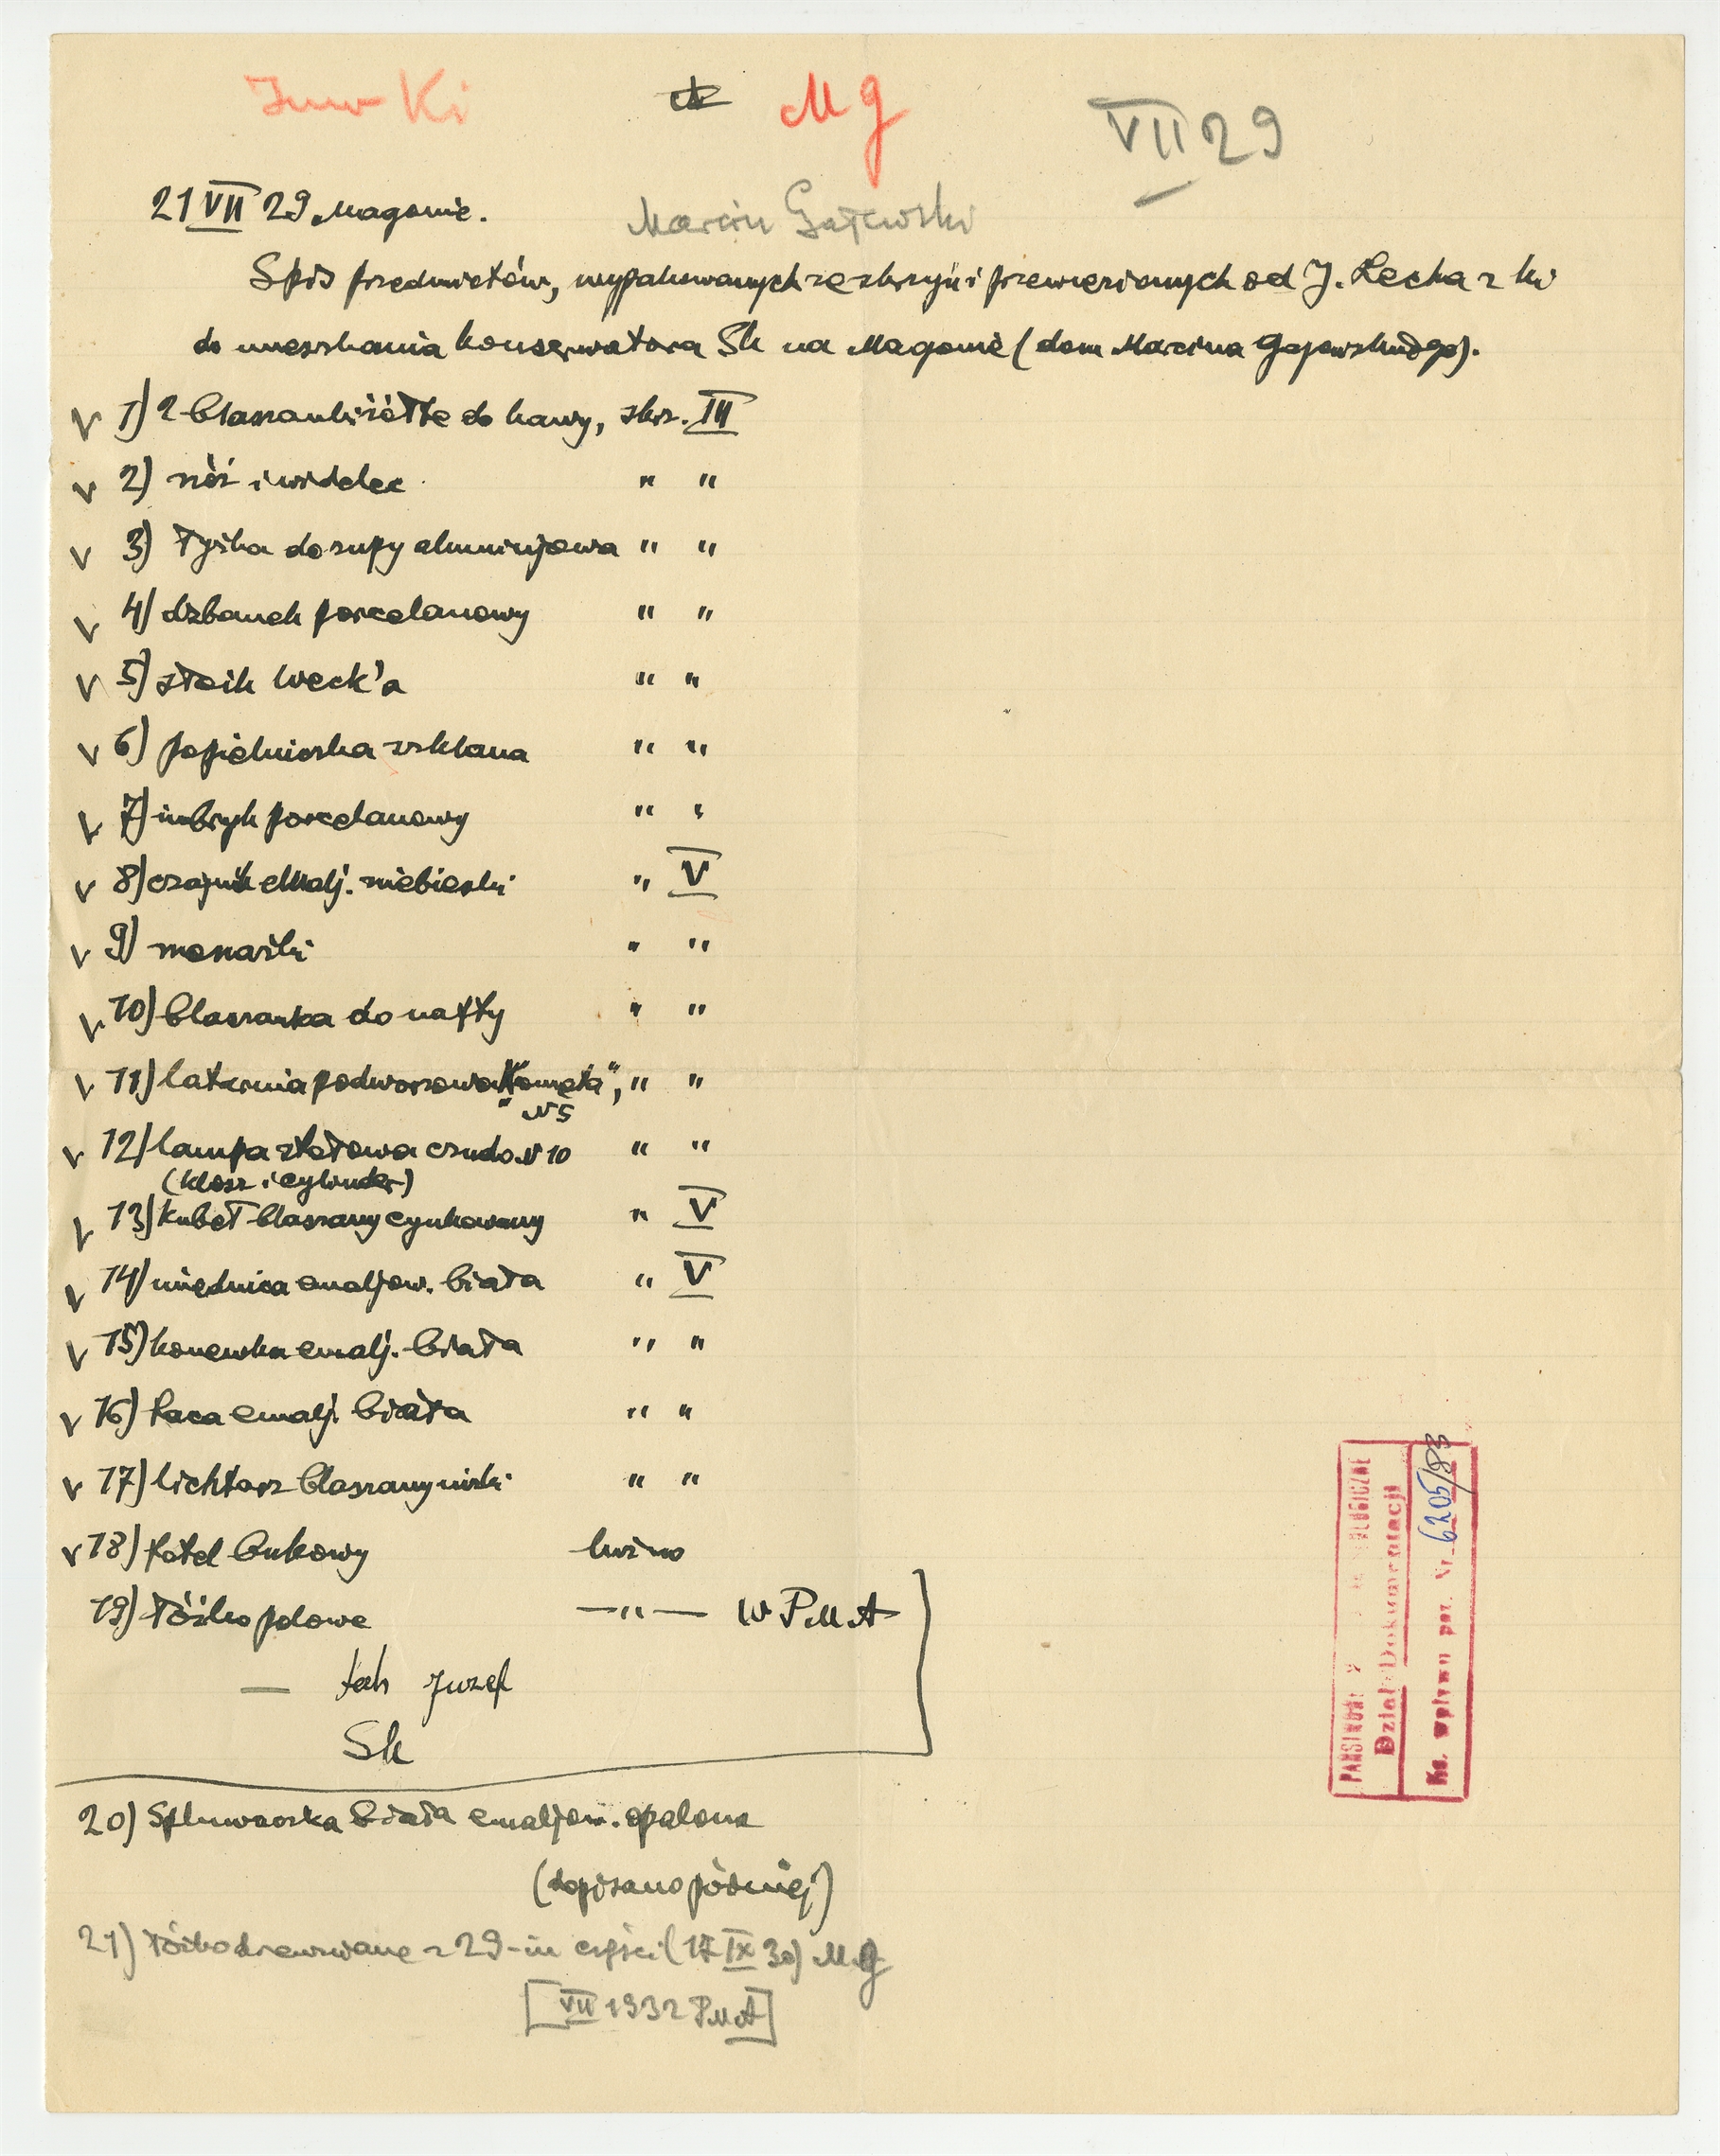 Inw Ki
Mg
VII 29
21 VII 29 Magonie.
Marcin Gajewski
Spis przedmiotów, wypakowanych ze skrzyń i przewiezionych od J. Lecha z Ki
do mieszkania konserwatora Sk na Magonie (dom Marcina Gajewskiego).
V 1) 2 blaszanki żółte do kawy, skrz. III
V 2) nóż i widelec " "
V 3) łyżka do zupy aluminijowa " "
V 4) dzbanek porcelanowy " "
V 5) słoik Weck'a " "
V 6) popielniczka szklana " "
V 7) imbryk porcelanowy " "
V 8) czajnik emalj. niebieski " V
V 9) menażki " "
V 10) blaszanka do nafty " "
V 11) latarnia podworzowa "Kometa", " "
N 5
V 12) lampa stołowa cudo N 10 " "
(klosz i cylinder)
V 13) kubeł blaszany cynkowany " V
V 14) miednica emaljow. biała " V
V 15) konewka emalj. biała " "
V 16) taca emalj. biała " "
V 17) lichtarz blaszany niski " "
V 18) fotel bukowy luźno
19) łóżko polowe —"— W PMA
— tak
Sk
20) Spluwaczka biała emaljow. opalona
(dopisano później)
21) łóżko drewniane z 29-iu części (17 IX 30) Mg
[VII 1932 PMA]
PAŃSTWOWE
Dział Dokumentacji
Ks. wpływu poz. Nr. 6205/83